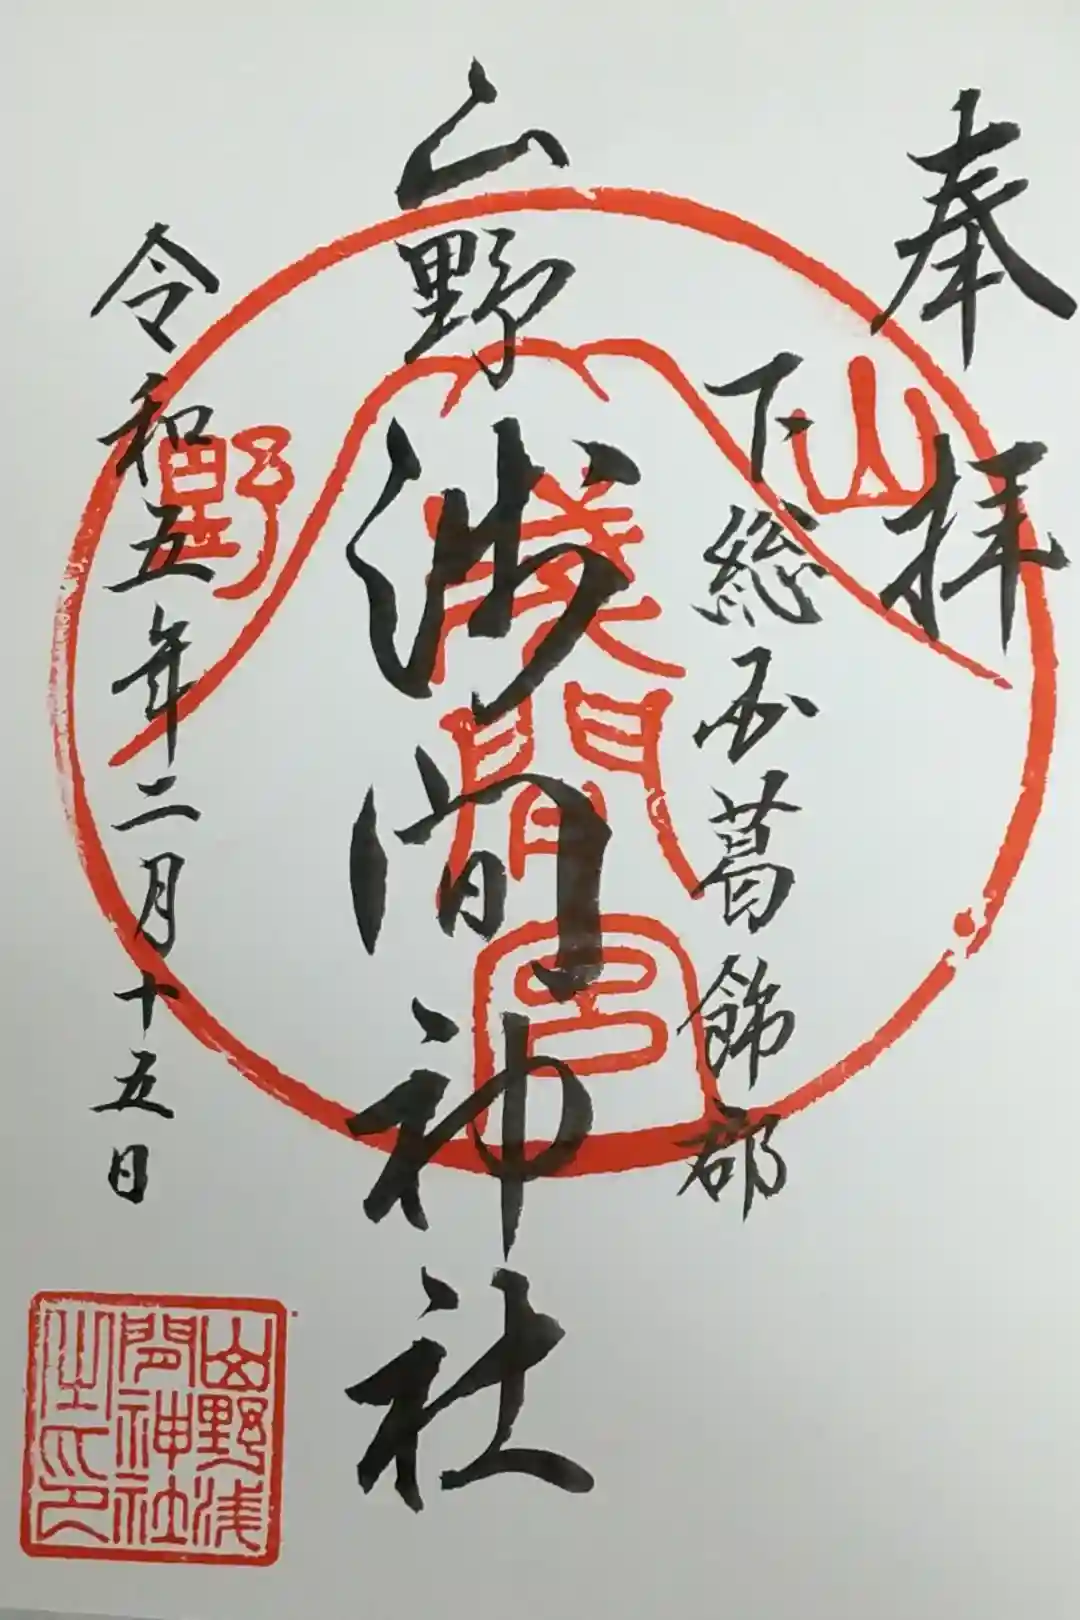 奉拝
下総国葛飾郡
山野浅間神社
令和五年二月十五日
山野
浅間宮
山野浅
間神社
之印